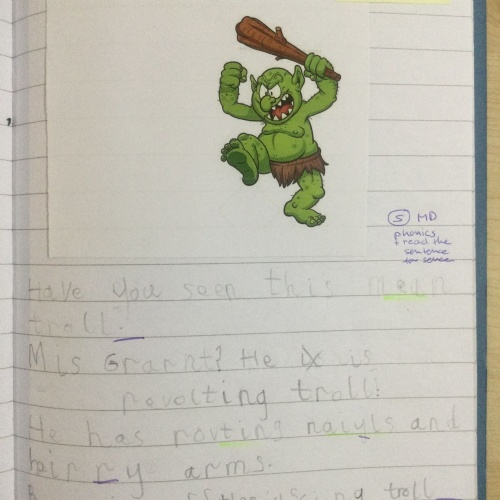 S MD
phonics
+ read the
sentence
for sense
Have you seen this mean
troll.
Mis Grarnt? He is
revolting troll!
He has routing naiyls and
hairry arms.
troll